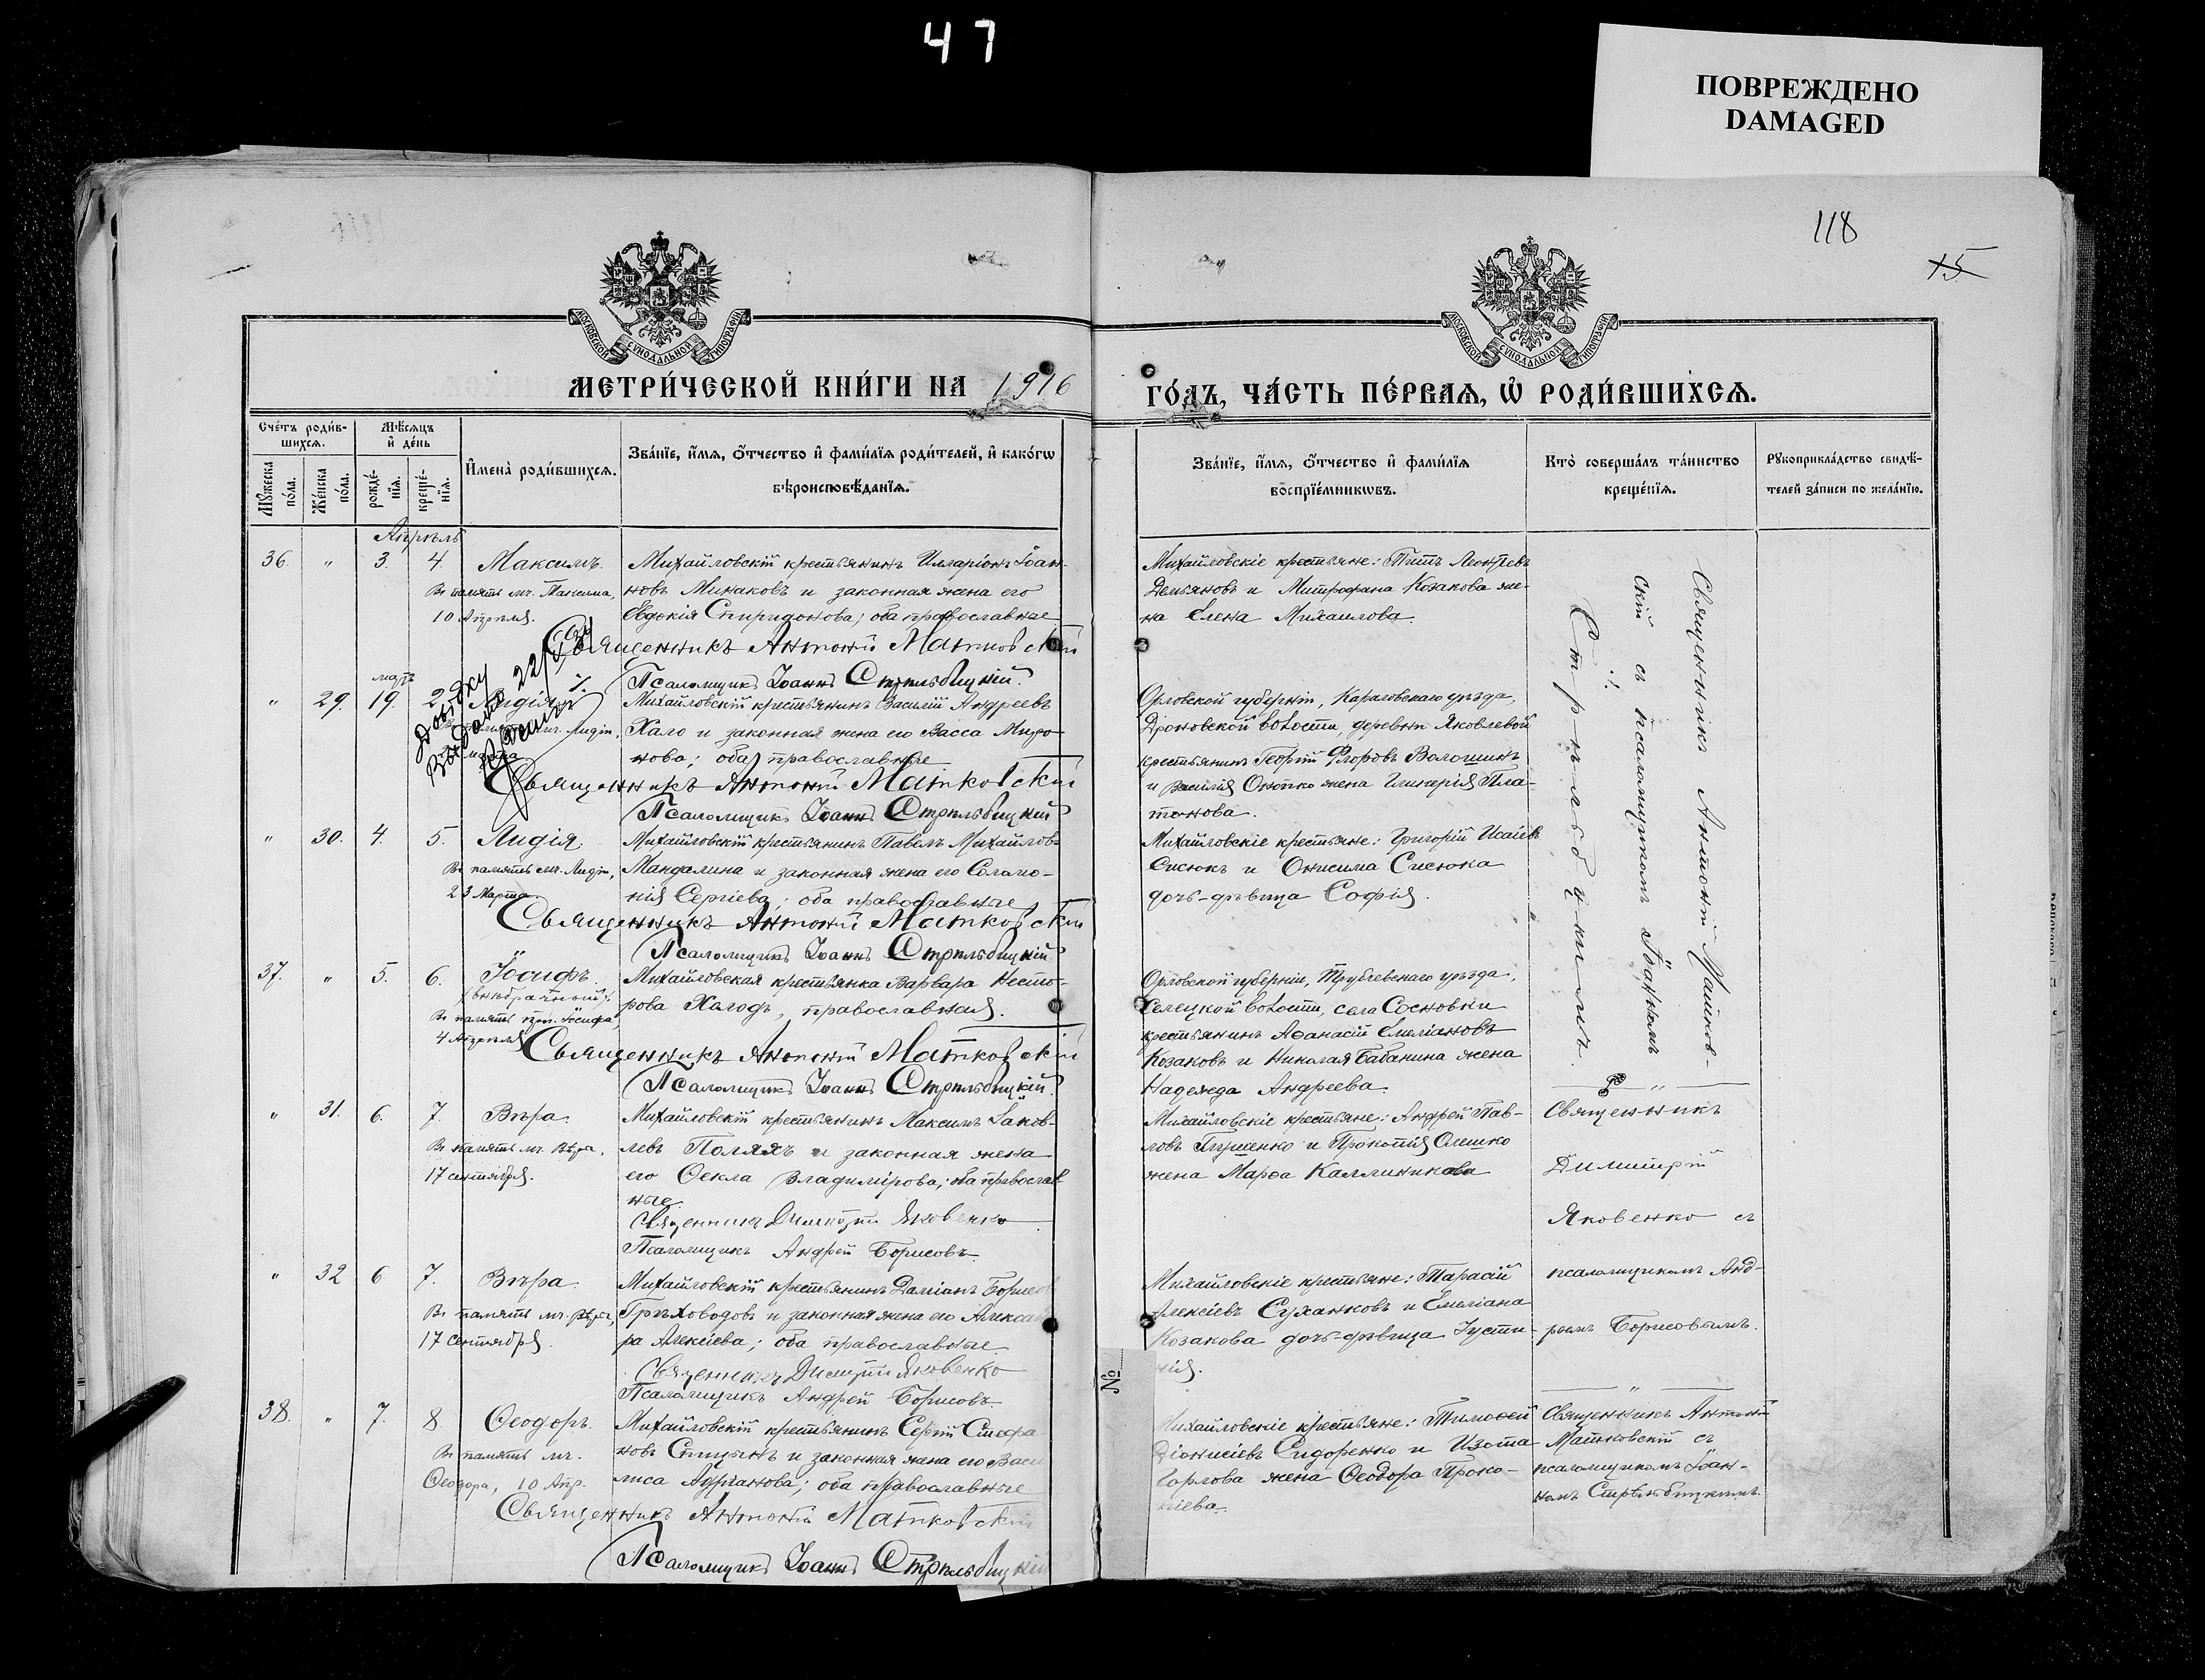 47
ПОВРЕЖДЕНО
DAMAGED
118
15
МОСКОВСКОЙ СУНОДАЛЬНОЙ ТИПОГРАФІИ
МОСКОВСКОЙ СУНОДАЛЬНОЙ ТИПОГРАФІИ
МЕТРИ́ЧЕСКОЙ КНИ́ГИ НА 1916
ГО́ДЪ, ЧА́СТЬ ПЕ́РВАѦ, Ѡ҆ РОДИ́ВШИХСѦ.
Сче́тъ роди́в-
шихсѧ.
Мѣ́сѧцъ
и҆ де́нь
Мꙋ́жеска
по́ла.
Же́нска
по́ла.
рожде́-
нїѧ.
креще́-
нїѧ.
И҆мена̀ роди́вшихсѧ.
Зва́нїе, и҆́мѧ, ѻ҆́тчество и҆ фами́лїѧ роди́телей, и҆ како́гѡ
вѣроисповѣ́данїѧ.
Зва́нїе, и҆́мѧ, ѻ҆́тчество и҆ фами́лїѧ
воспрїе́мникѡвъ.
Кто̀ соверша́лъ та́инство
креще́нїѧ.
Рꙋкоприкла́дство свидѣ́-
телей за́писи по жела́нїю.
Апрѣль
36. " 3. 4 Максимъ.
Въ память мч. Максима,
10 Апрѣля.
Михайловскій крестьянинъ Илларіонъ Іоан-
новъ Минаковъ и законная жена его
Евдокія Спиридонова; оба православные
Священникъ Антоній Матковскій
Псаломщикъ Іоаннъ Стрѣльбицкій.
Михайловскіе крестьяне: Титъ Леонтіевъ
Демьяновъ и Митрофана Козакова же-
на Елена Михаилова.
мартъ
" 29. 19. Лидія
мч. Лидіи,
22/
Михайловскій крестьянинъ Василій Андреевъ
Хало и законная жена его Васса Миро-
нова; оба православные
Священникъ Антоній Матковскій
Псаломщикъ Іоаннъ Стрѣльбицкій
Орловской губерніи, уѣзда,
Дроновской волости, деревни Яковлевой
крестьянинъ Георгій Флоровъ Волошинъ
и Василія жена Гликерія Пла-
тонова.
" 30. 4. 5. Лидія.
Въ память мч. Лидіи,
23 Марта.
Михайловскій крестьянинъ Павелъ Михайловъ
Мандалина и законная жена его Соломо-
нія Сергіева; оба православные
Священникъ Антоній Матковскій
Псаломщикъ Іоаннъ Стрѣльбицкій
Михайловскіе крестьяне: Григорій Исаіевъ
Сисюкъ и Онисима Сисюка
дочь-дѣвица Софія.
37. " 5. 6. Іосифъ.
Въ память преп. Іосифа,
4 Апрѣля
Михайловская крестьянка Варвара Несто-
рова Халодъ, православная.
Священникъ Антоній Матковскій
Псаломщикъ Іоаннъ Стрѣльбицкій.
Орловской губерніи, Трубчевскаго уѣзда,
Селецкой волости, села Сосновки
крестьянинъ Аѳанасій Емеліановъ
Козаковъ и Николая Бабанина жена
Надежда Андреева.
Священникъ Антоній Матков-
скій съ псаломщикомъ Іоанномъ
Стрѣльбицкимъ.
" 31. 6. 7. Вѣра.
Въ память мч. Вѣра,
17 сентября.
Михайловскій крестьянинъ Максимъ Іаков-
левъ Полякъ и законная жена
его Ѳекла Владимірова; оба православ
ные
Священникъ Димитрій Яковенко
Псаломщикъ Андрей Борисовъ.
Михайловскіе крестьяне: Андрей Пав-
ловъ Глушенко и Прокопія Олешко
жена Марѳа Каллиникова
Священникъ
Димитрій
Яковенко съ
псаломщикомъ Анд-
реемъ Борисовымъ.
" 32 6 7. Вѣра
Въ память мч. Вѣры,
17 Сентября.
Михайловскій крестьянинъ Даміанъ Борисов
Грѣховодовъ и законная жена его Алексан
ра Алексіева; оба православные
Священникъ Димитрій Яковенко
Псаломщикъ Андрей Борисовъ
Михайловскіе крестьяне: Тарасій
Алексіевъ Сухаковъ и Емеліана
Козакова дочь-дѣвица Іусти-
нія.
№
38. " 7. 8 Ѳеодоръ.
Въ память мч.
Ѳеодора, 10 Апр.
Михайловскій крестьянинъ Сергій Стефа
новъ Спицынъ и законная жена его Васи
лиса Адріанова; оба православные
Священникъ Антоній Матковскій
Псаломщикъ Іоаннъ Стрѣльбицкій
Михайловскіе крестьяне: Тимоѳей
Діонисіевъ Сидоренко и Изота
Горлова жена Ѳеодора Проко-
піева.
Священникъ Антоній
Матковскій съ
псаломщикомъ Іоан-
номъ Стрѣльбицкимъ.